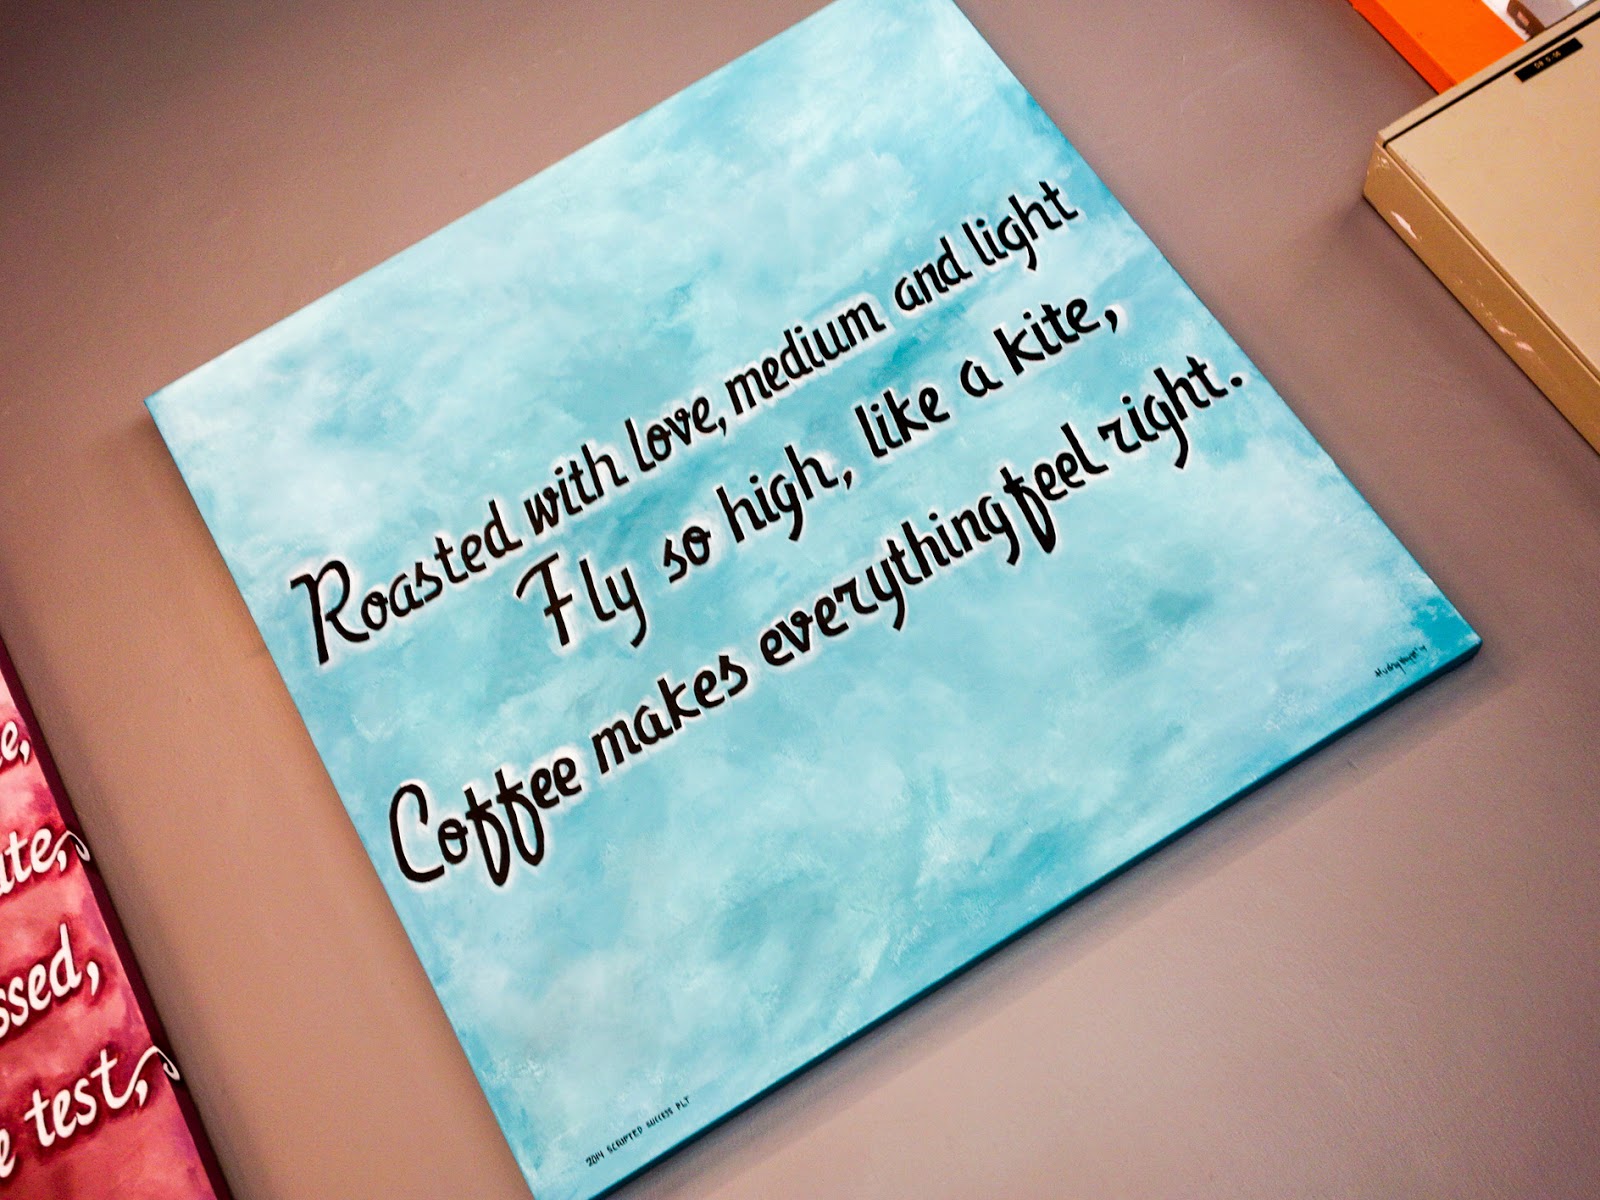 Roasted with love, medium and light
Fly so high, like a kite,
Coffee makes everything feel right.
2014 SCRIPTED SUCCESS PLT
test,